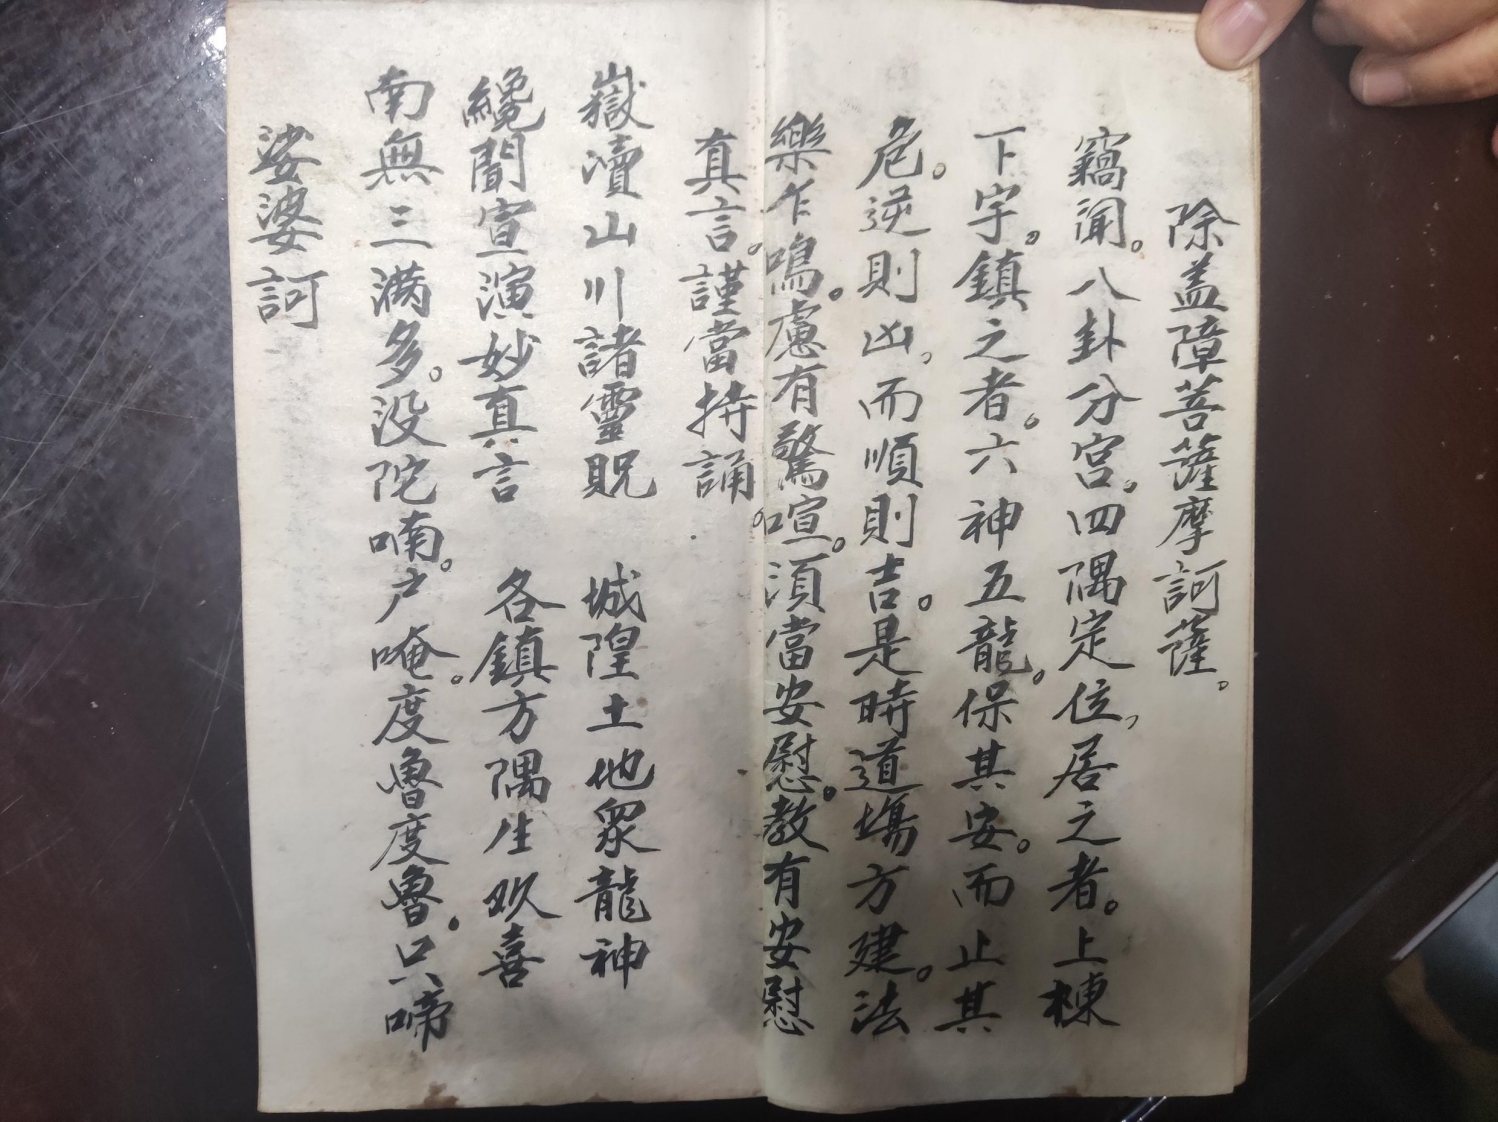 除盖障菩薩摩訶薩。
竊聞。八卦分宫。四隅定位，居之者。上棟
下宇。鎮之者。六神五龍。保其安。而止其
危。逆則凶，而順則吉。是時道塲方建。法
樂乍鳴。慮有驚喧。須當安慰。教有安慰
真言。謹當持誦。
嶽瀆山川諸靈貺 城隍土地衆龍神
纔聞宣演妙真言 各鎮方隅生欢喜
南無三满多。没陀喃。户唵。度魯度魯。只啼
娑婆訶